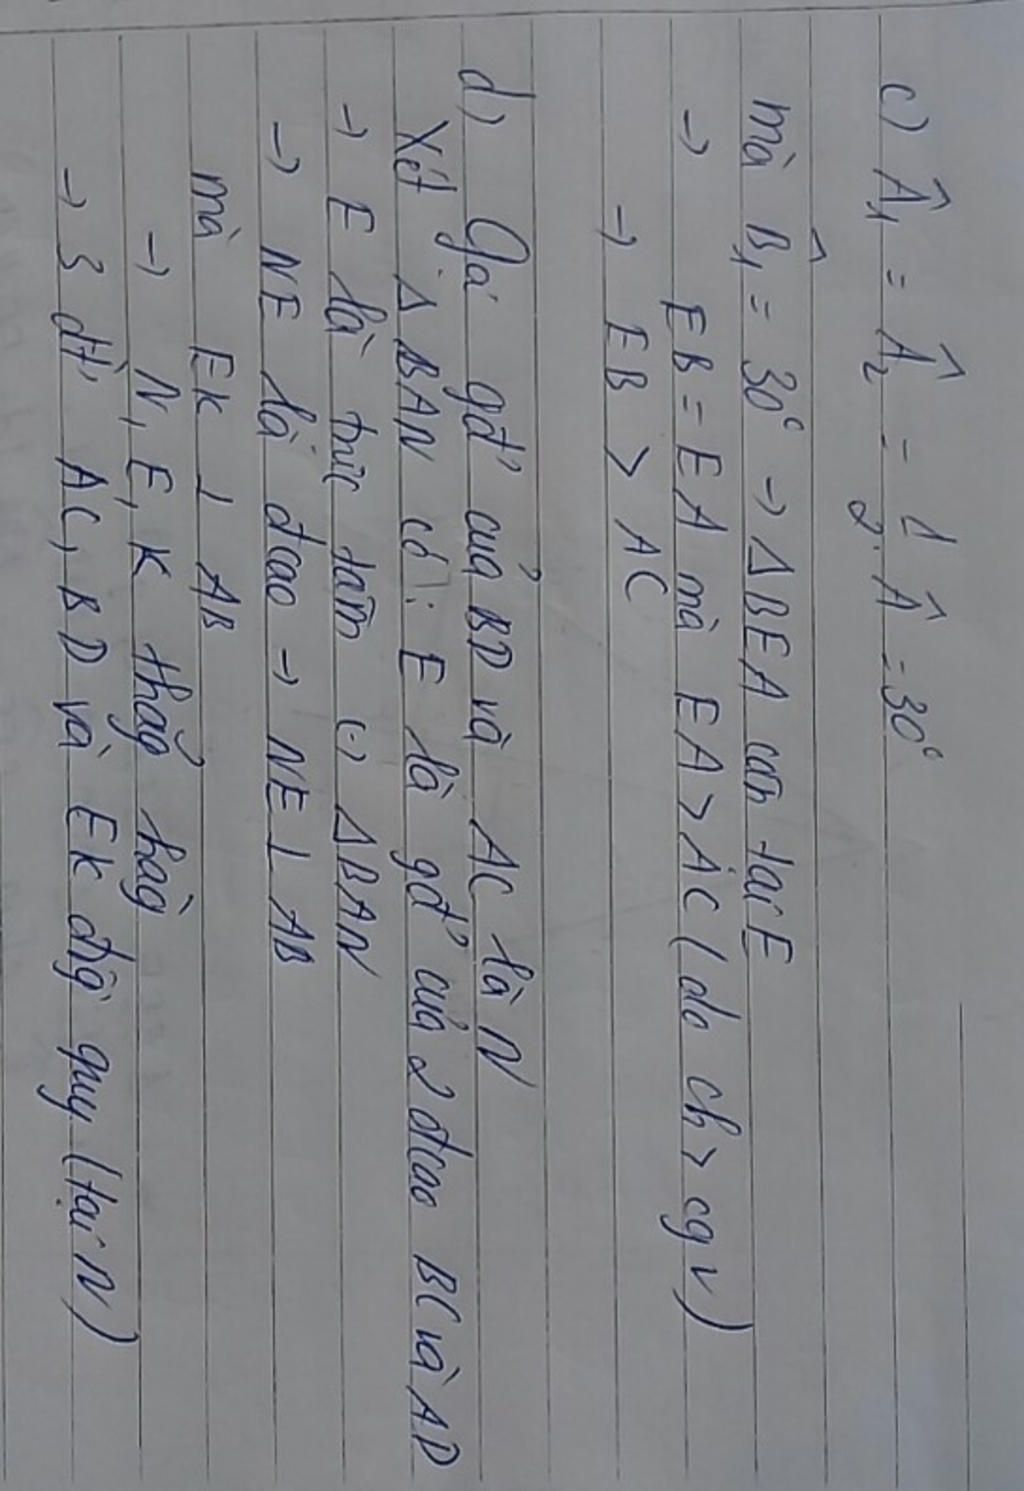 c) Â₁ = Â₂ = 1/2 . Â = 30°
mà B̂₁ = 30° → Δ BEA cân tại E
→ EB = EA mà EA > AC ( do ch > cgv )
→ EB > AC
d) Gọi gđ' của BD và AC là N
Xét Δ BAN có : E là gđ' của 2 đcao BC và AD
→ E là trực tâm Δ BAN
→ NE là đcao → NE ⊥ AB
mà EK ⊥ AB
→ N, E, K thẳg hàg
→ 3 đt' AC, BD và EK đồg quy ( tại N )